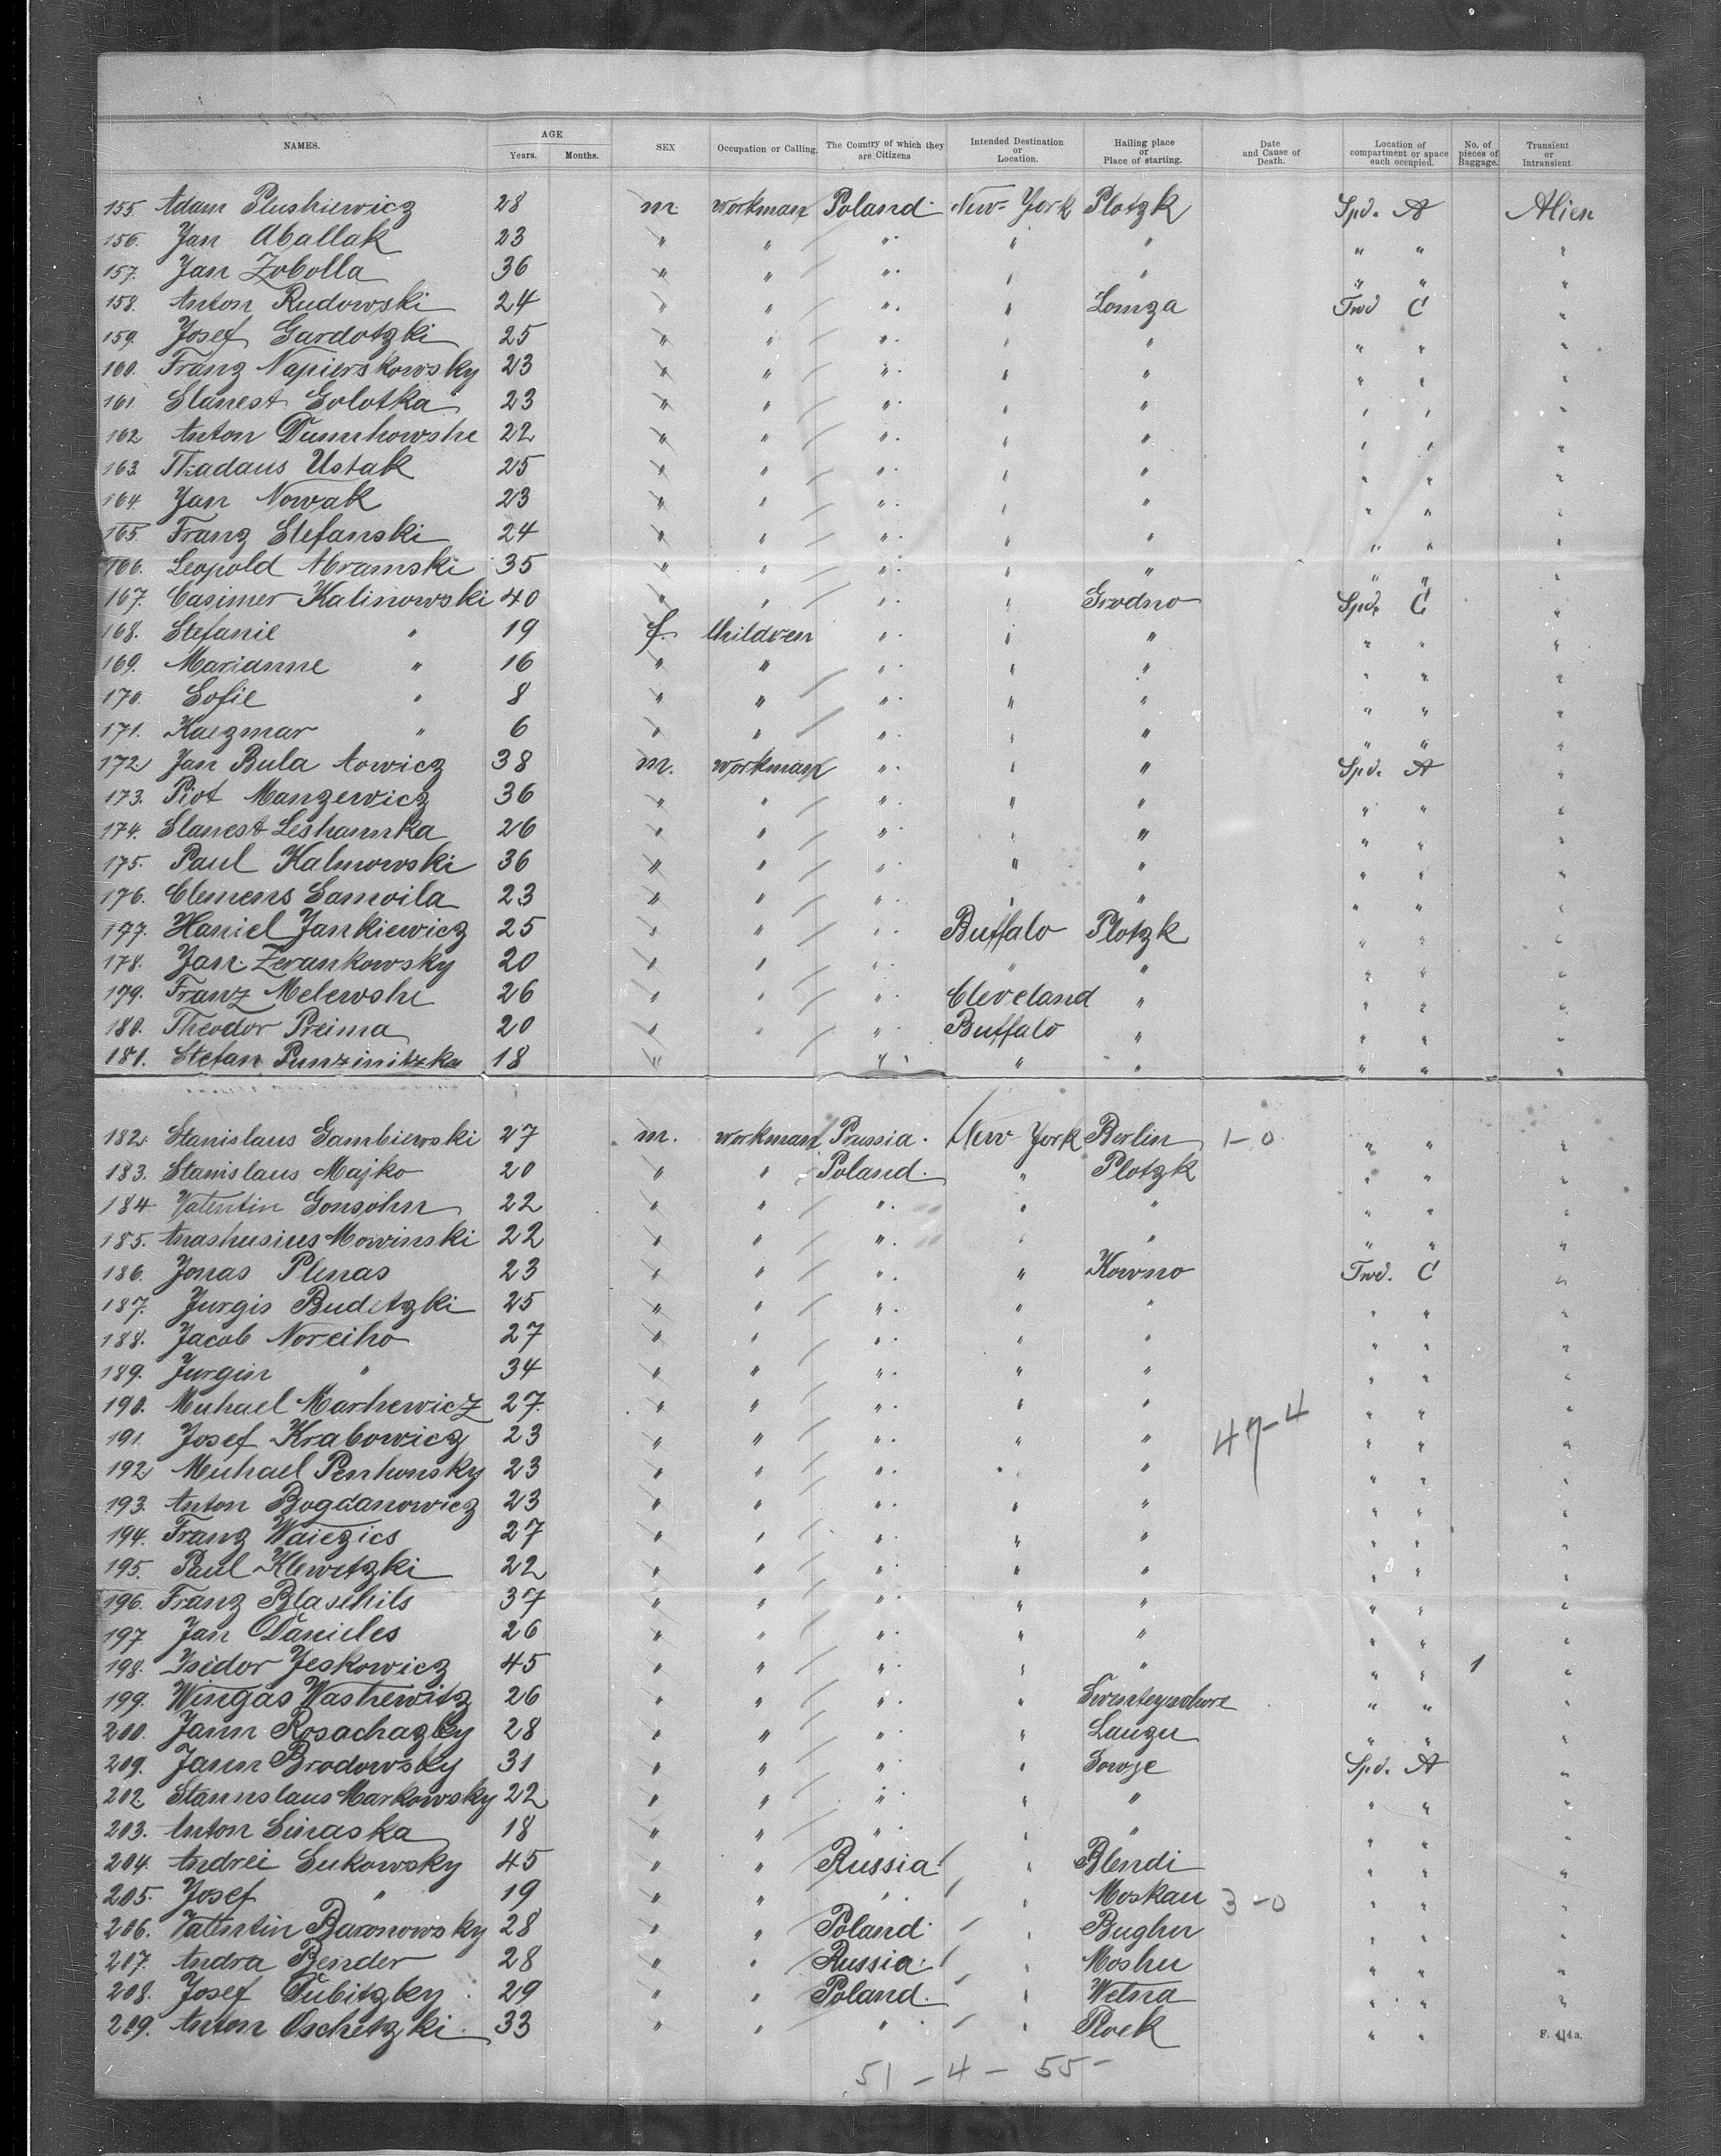 NAMES. AGE Years. Months. SEX Occupation or Calling. The Country of which they are Citizens Intended Destination or Location. Hailing place or Place of starting. Date and Cause of Death. Location of compartment or space each occupied. No. of pieces of Baggage. Transient or Intransient.
155. Adam Plushiewicz 28 m workman Poland New-York Plotzk Spd. A Alien
156. Jan Aballak 23 " " " " " " " "
157. Jan Zobolla 36 " " " " " " " "
158. Anton Rudowski 24 " " " " Lomza Twd C "
159. Josef Gardotzki 25 " " " " " " " "
160. Franz Napierskowsky 23 " " " " " " " "
161. Slanest Golotka 23 " " " " " " " "
162. Anton Dumhowshe 22 " " " " " " " "
163. Thadaus Ustak 25 " " " " " " " "
164. Jan Nowak 23 " " " " " " " "
165. Franz Stefanski 24 " " " " " " " "
166. Leopold Abramski 35 " " " " " " " "
167. Casimer Kalinowski 40 " " " " Grodno Spd. C "
168. Stefanie " 19 f. Children " " " " " "
169. Marianne " 16 " " " " " " " "
170. Sofie " 8 " " " " " " " "
171. Kaezmar " 6 " " " " " " " "
172. Jan Bula towicz 38 m. workman " " " Spd. A "
173. Piot Manzewicz 36 " " " " " " " "
174. Slanest Leshamka 26 " " " " " " " "
175. Paul Kalmowski 36 " " " " " " " "
176. Clemens Samoila 23 " " " " " " " "
177. Haniel Jankiewicz 25 " " " Buffalo Plotzk " " "
178. Jan Zerankowsky 20 " " " " " " " "
179. Franz Melewshi 26 " " " Cleveland " " " "
180. Theodor Preima 20 " " " Buffalo " " " "
181. Stefan Punzinitzka 18 " " " " " " "
182. Stanislaus Gambiewski 27 m. workman Prussia. New-York Berlin 1-0 " " "
183. Stanislaus Majko 20 " " Poland. " Plotzk " " "
184 Valentin Gonsohn 22 " " " " " " " "
185. Anashusius Mowinski 22 " " " " " " " "
186. Jonas Plenas 23 " " " " Kowno Twd. C "
187. Jurgis Budetzki 25 " " " " " " " "
188. Jacob Noreiho 27 " " " " " " " "
189. Jurgin " 34 " " " " " " " "
190. Muhael Marhewicz 27. " " " " " " " "
191. Josef Krabowicz 23 " " " " " 47-4 " " "
192. Muhael Penhonsky 23 " " " " " " " "
193. Anton Bogdanowicz 23 " " " " " " " "
194. Franz Waiezics 27 " " " " " " " "
195. Paul Klewitzki 22 " " " " " " " "
196. Franz Blasehils 37 " " " " " " " "
197. Jan Danieles 26 " " " " " " " "
198. Isidor Jeskowicz 45 " " " " " " " 1 "
199. Wingas Washewitz 26 " " " " " " "
200. Jann Rosachazky 28 " " " " Lauzu " " "
209. Jann Brodowsky 31 " " " " Sowje Spd. A "
202. Stannslaus Markowsky 22 " " " " " " " "
203. Anton Sinaska 18 " " " " " " " "
204. Andrei Sukowsky 45 " " Russia " Blendi " " "
205. Josef " 19 " " " " Moskau 3-0 " " "
206. Valentin Baronowsky 28 " " Poland " Bughu " " "
207. Andra Bender 28 " " Russia " Moshu " " "
208. Josef Dubitzky 29 " " Poland. " Wetna " " "
209. Anton Oschetzki 33 " " " " Plock " "
F. 414a.
51 - 4 - 55 -